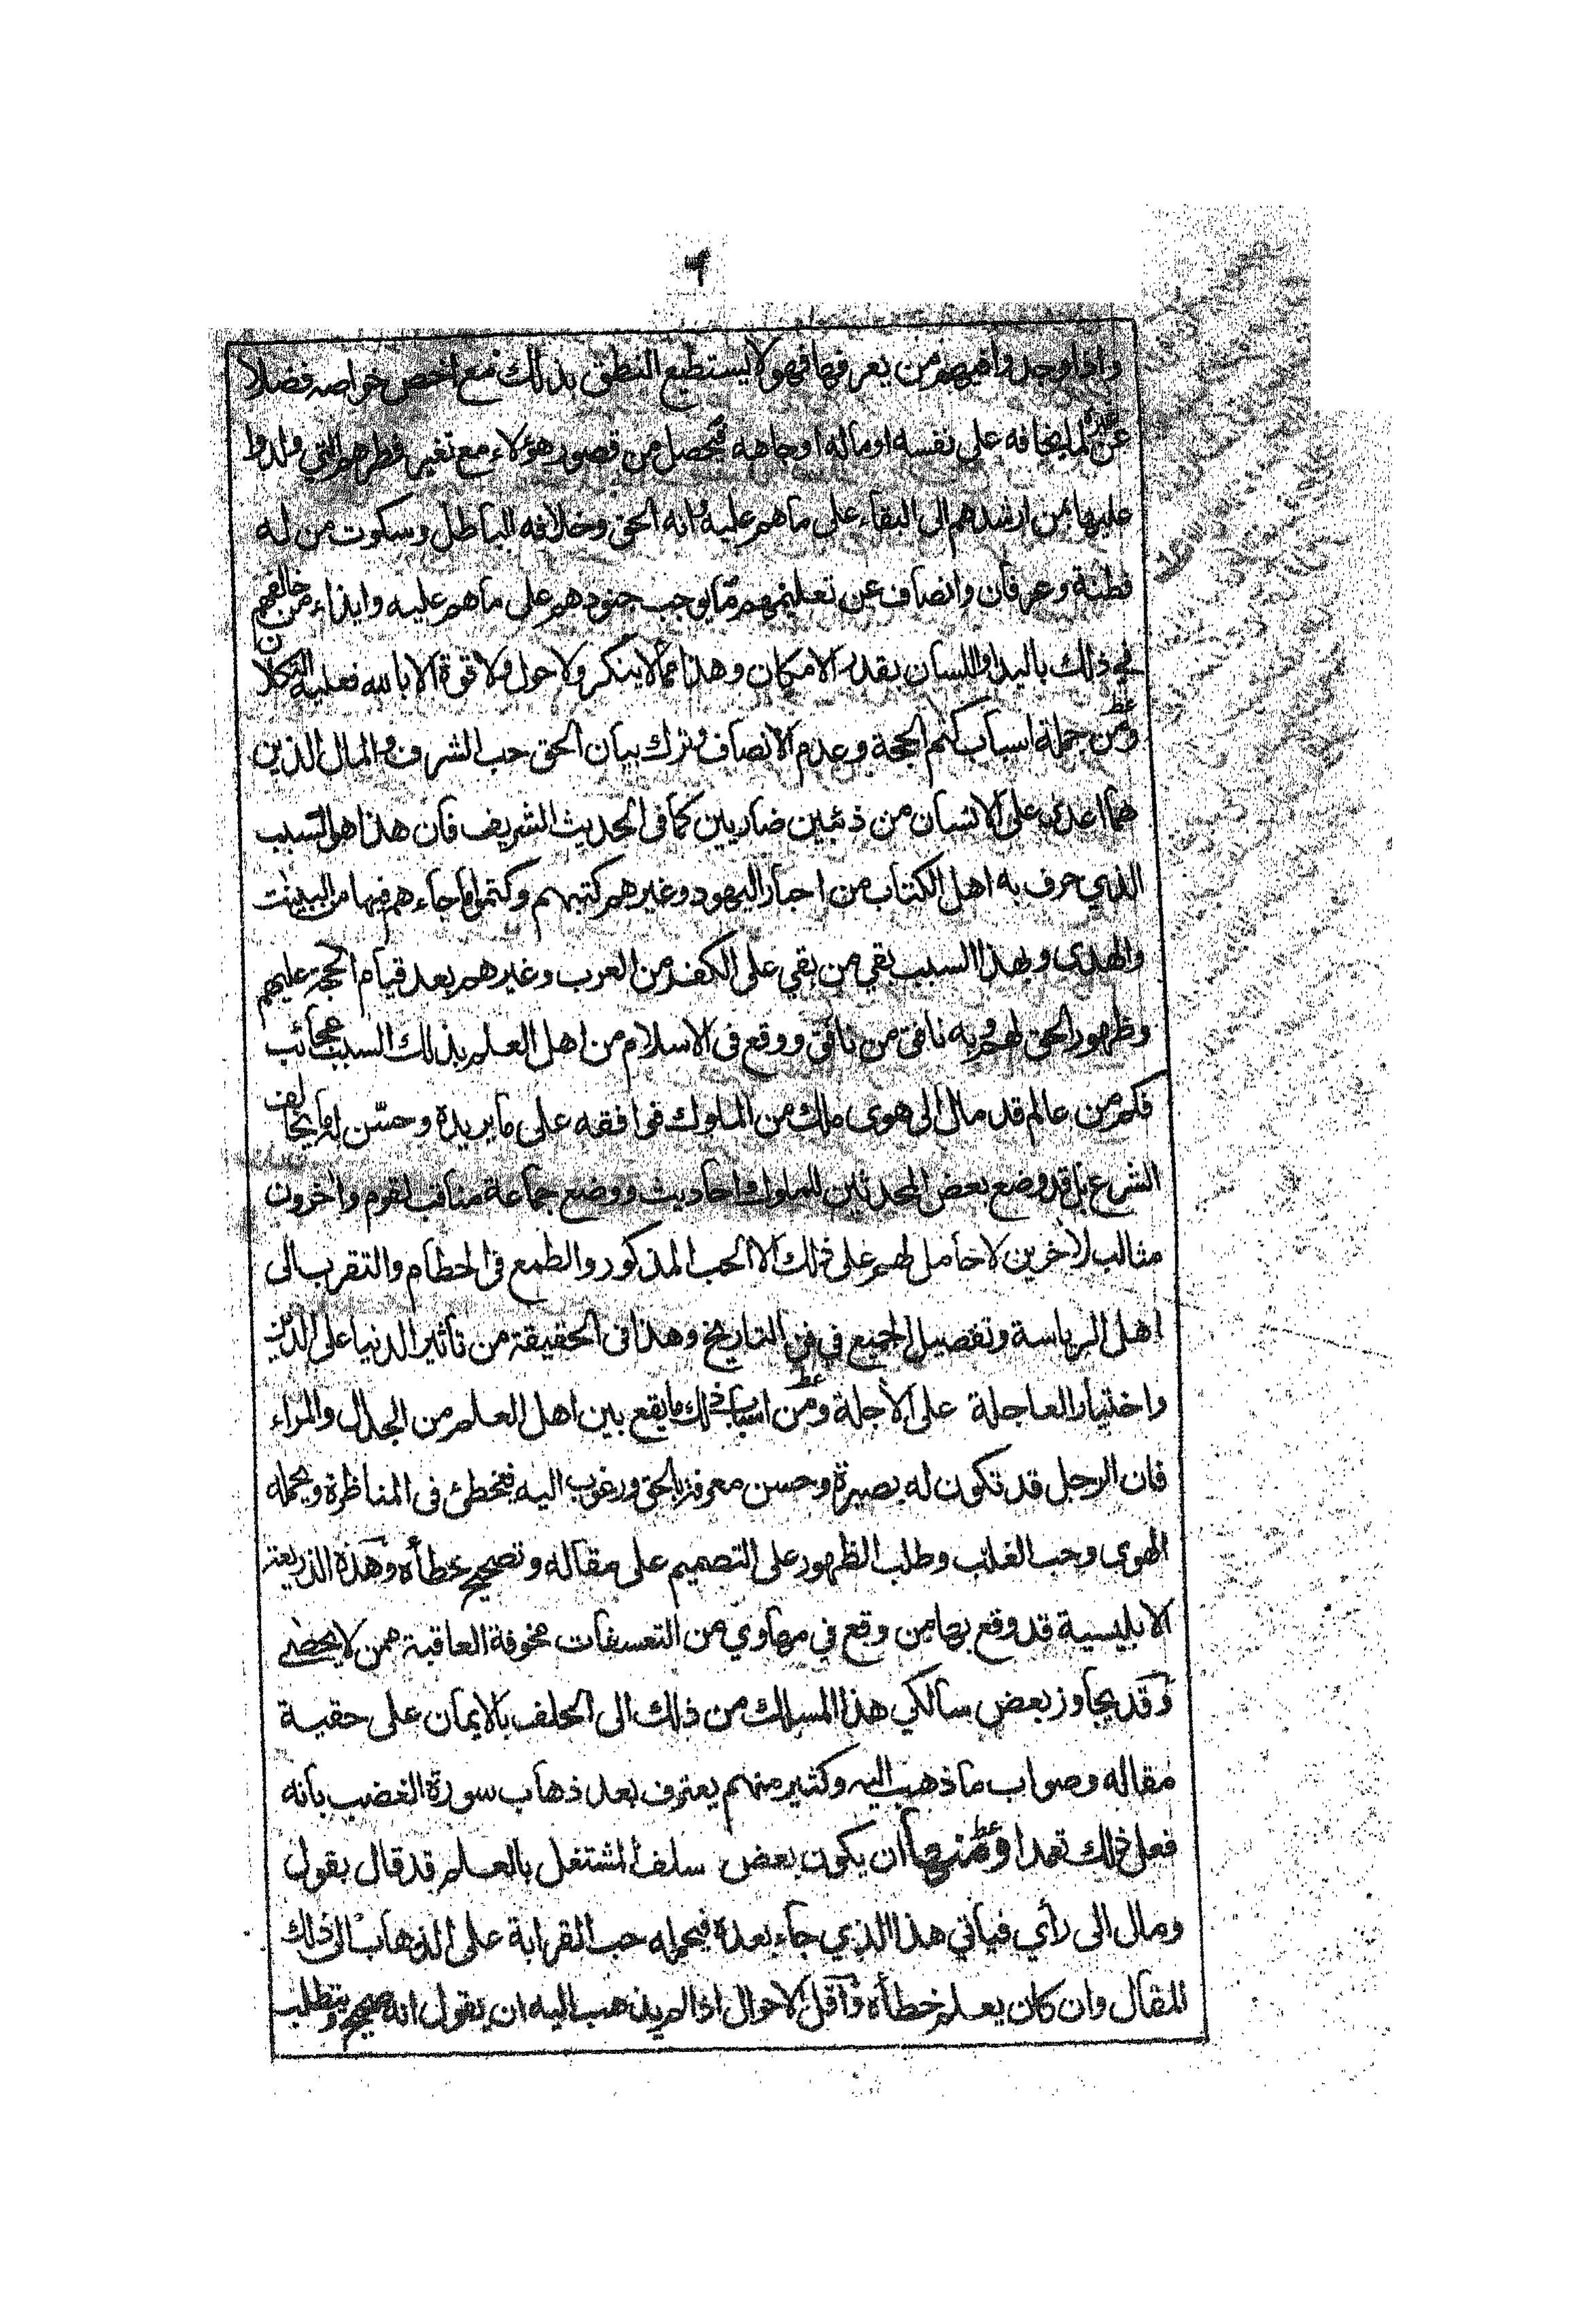 ٦
واذا وجد فيهم من يعرفها فهو لا يستطيع النطق بذلك مع اخص خواصه فضلا
عن غيره لما يخافه على نفسه او ماله او جاهه فيحصل من قصور هؤلاء مع تغير فطرهم التي ولدوا
عليها من ارشدهم الى البقاء على ما هم عليه وانه الحق وخلافه الباطل وسكوت من له
فطنة وعرفان وانصاف عن تعليمهم ما يوجب جمودهم على ما هم عليه وايذاء من خالفهم
في ذلك باليد واللسان بقدر الامكان وهذا مما لا ينكر ولا حول ولا قوة الا بالله فعليه التكلان
ومن جملة اسباب كتم الحجة وعدم الانصاف وترك بيان الحق حب الشرف والمال الذين
هما اعدى على الانسان من ذئبين ضاريين كما فى الحديث الشريف فان هذا هو السبب
الذي حرف به اهل الكتاب من احبار اليهود وغيرهم كتبهم وكتموا ما جاءهم فيها من البينت
والهدى وبهذا السبب بقي من بقي على الكفر من العرب وغيرهم بعد قيام الحجة عليهم
وظهور الحق لهم وبه نافق من نافق ووقع فى الاسلام من اهل العلم بذلك السبب عجائب
فكم من عالم قد مال الى هوى ملك من الملوك فوافقه على ما يريده وحسّن له ما يخالف
الشرع بل قد وضع بعض المحدثين للملوك احاديث ووضع جماعة مناقب لقوم واخرون
مثالب لاخرين لا حامل لهم على ذلك الا الحب المذكور والطمع فى الحطام والتقرب الى
اهل الرياسة وتفصيل الجميع في فن التاريخ وهذا فى الحقيقة من تأثير الدنيا على الدين
واختيار العاجلة على الآجلة ومن اسباب ذلك ما يقع بين اهل العلم من الجدال والمراء
فان الرجل قد تكون له بصيرة وحسن معرفة بالحق ورغوب اليه فيخطئ فى المناظرة ويحمله
الهوى وحب الغلب وطلب الظهور على التصميم على مقاله وتصحيح خطأه وهذه الذريعة
الابليسية قد وقع بها من وقع في مهاوي من التعسفات مخوفة العاقبة ممن لا يحصى
وقد يجاوز بعض سالكي هذا المسلك من ذلك الى الحلف بالايمان على حقية
مقاله وصواب ما ذهب اليه وكثير منهم يعترف بعد ذهاب سورة الغضب بانه
فعل ذلك تعمدا ومنها ان يكون بعض سلف المشتغل بالعلم قد قال بقول
ومال الى رأي فيأتي هذا الذي جاء بعده فيحمله حب القرابة على الذهاب الى ذلك
المقال وان كان يعلم خطأه واقل الاحوال اذا لم يذهب اليه ان يقول انه صحيح ويتطلب